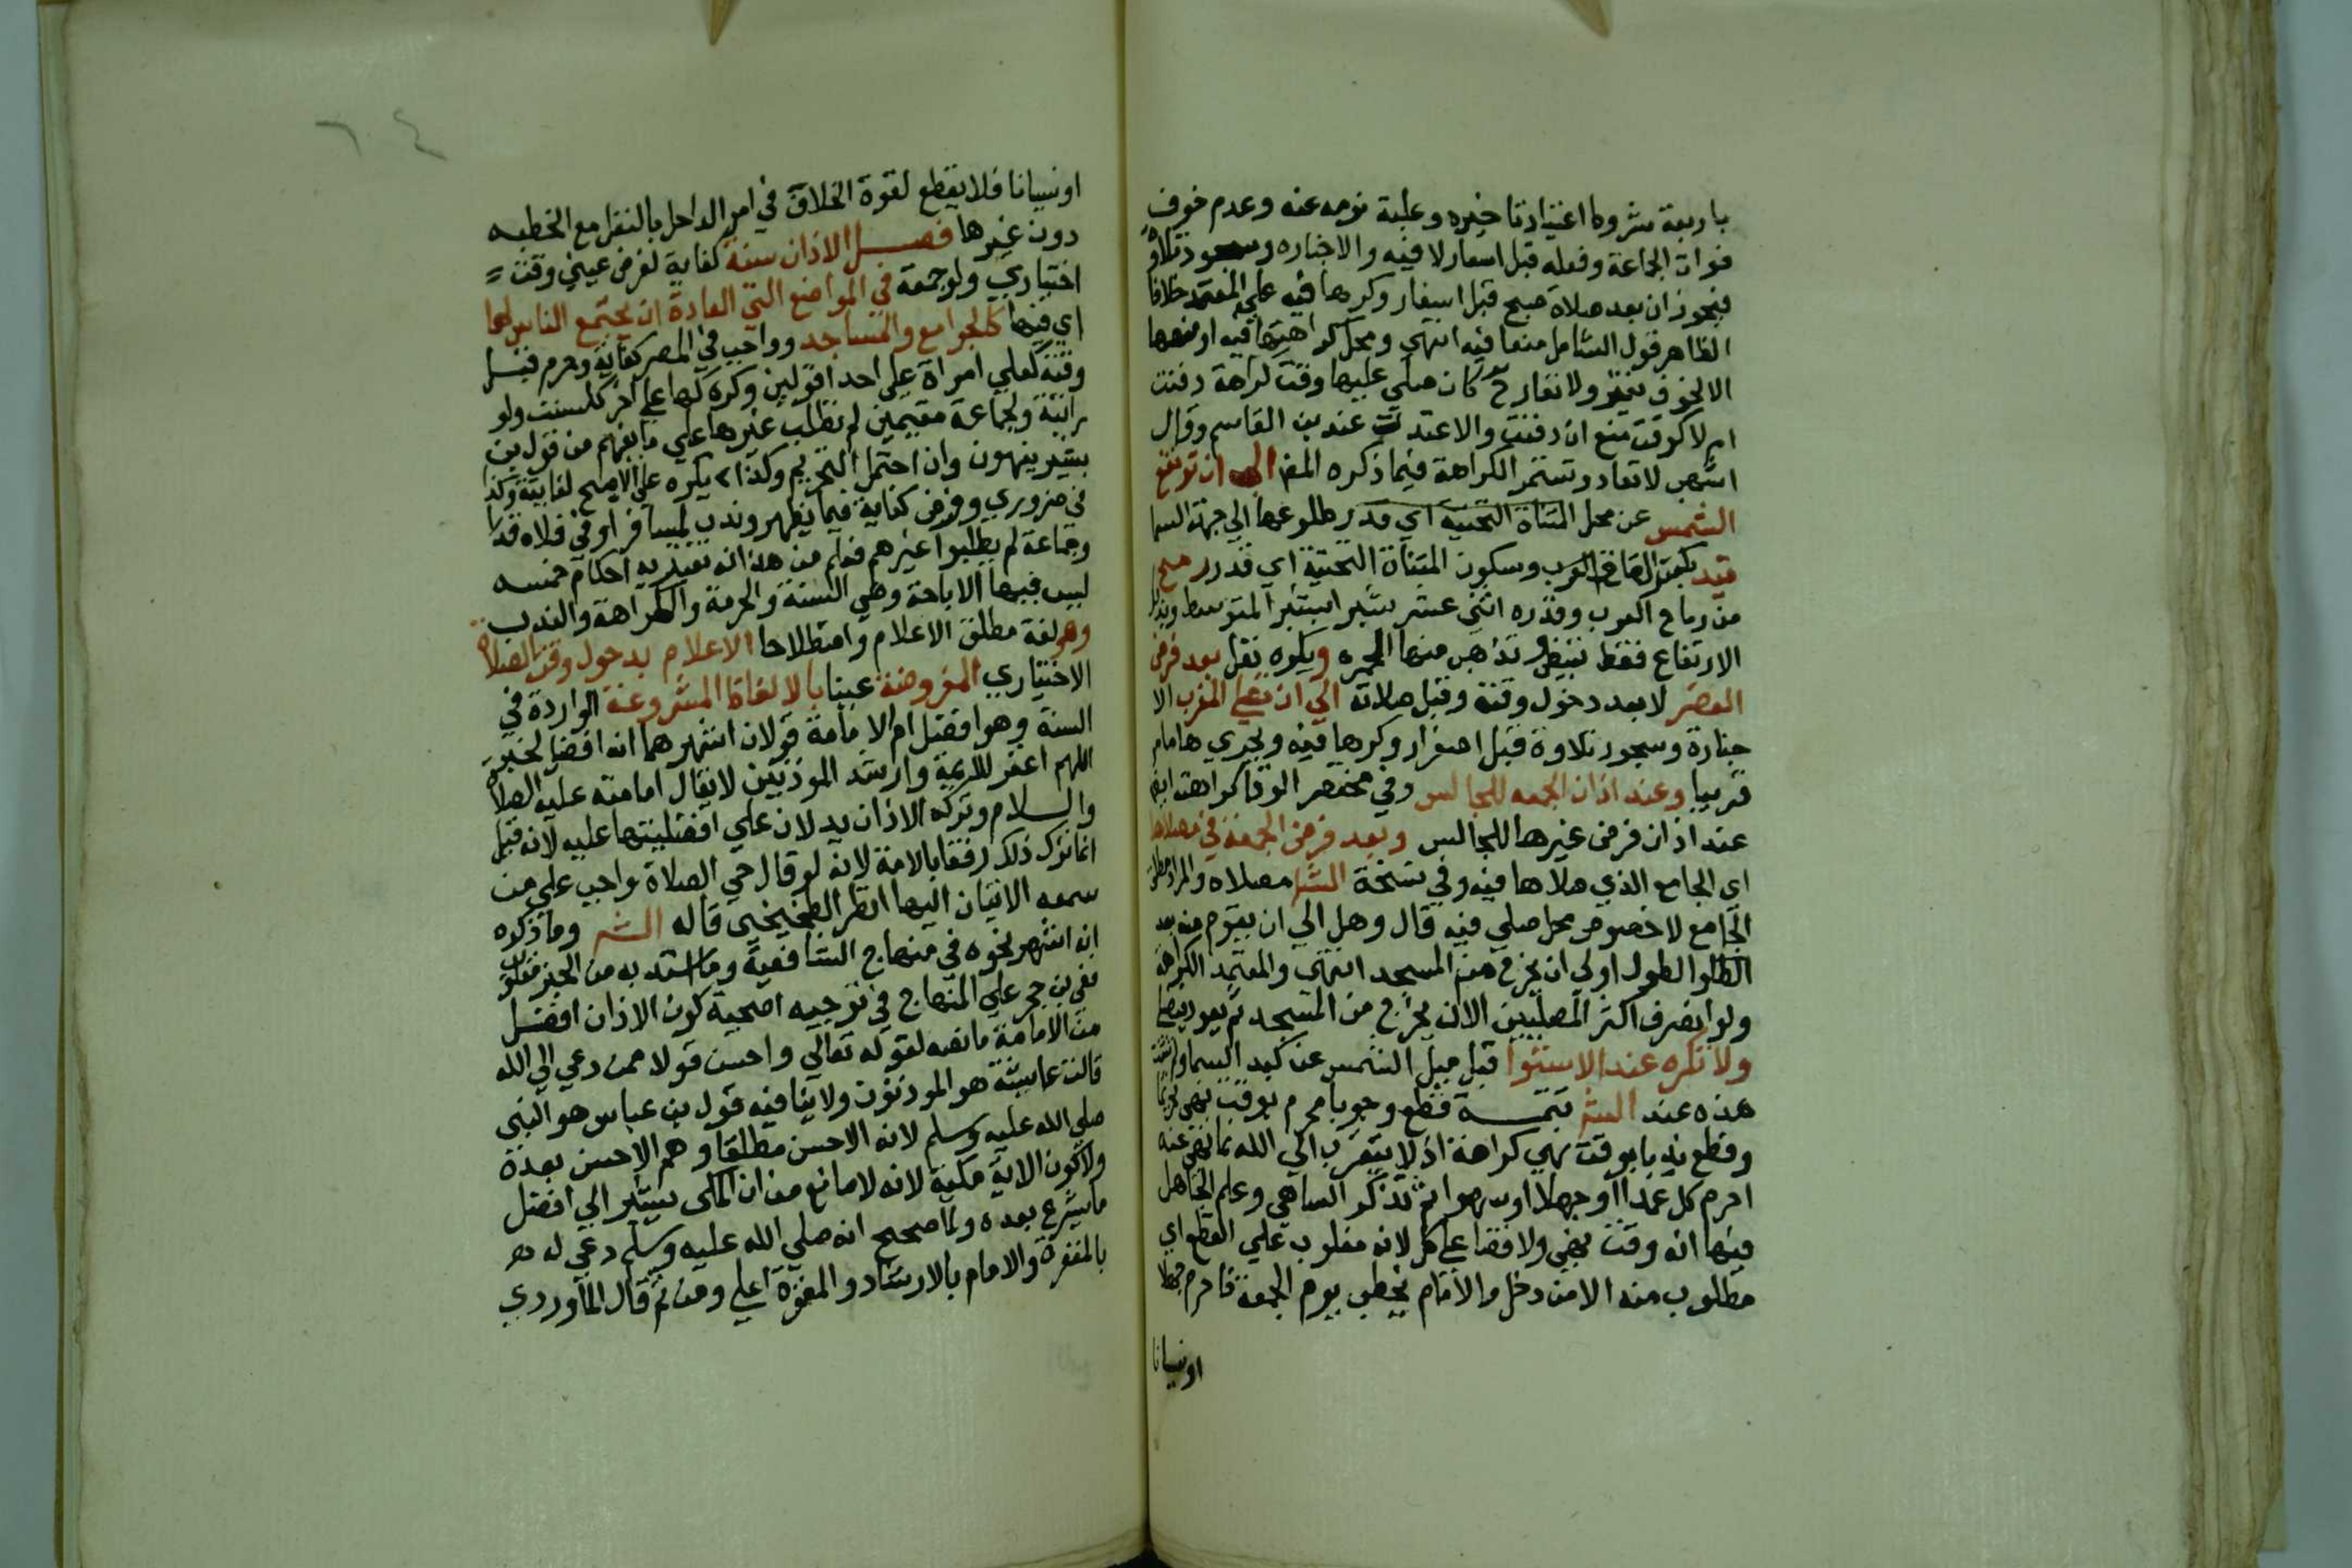 باربعة شروط اعتياد تاخيره وغلبة نومه عنه وعدم خوف
فوات الجماعة وفعله قبل اسفار لا فيه والا جنازه وسجود تلاوة
فيجوزان بعد صلاة صبح قبل اسفار وكرها فيه علي المعتمد خلافا
الظاهر قول الشامل منعا فيه انتهي ومحل كراهتها فيه او منعها
الا لخوف تغير ولا تعاد كان صلي عليها وقت كراهة دفنت
ام لا كوقت منع ان دفنت والا اعيدت عند بن القاسم وقال
اشهب لا تعاد وتستمر الكراهة فيما ذكره المص الي ان ترتفع
الشمس عن محل المثناة التحتية اي قدر طلوعها الي جهة السما
قيد بكسر القاف وسكون المثناة التحتية اي قدر رمح
من رماح العرب وقدره اثني عشر شبرا بشبر المتوسط
الارتفاع فقط تبيض وتذهب منها الحمره ويكره نفل بعد فرض
العصر لا بعد دخول وقته وقبل صلاته الي ان تصلي المغرب الا
جنازة وسجود تلاوة قبل اصفرار وكرها فيه ويجري ها مامر
قريبا وعند اذان الجمعه للجالس وفي مختصر الوقا كراهته ايض
عند اذان فرض غيرها للجالس وبعد فرض الجمعة في مصلاها
اي الجامع الذي صلاها فيه وفي نسخة الش مصلاه والمراد مطلق
الجامع لا خصوص محل صلي فيه قال وهل الي ان يقوم منه بعد
الطول اولي ان يخرج من المسجد انتهي والمعتمد الكراهة
ولو انصرف اكثر المصليين الا ان يخرج من المسجد ثم يعود يصلي
ولا تكره عند الاستوا قبل ميل الشمس عن كبد السما
هذه عند الش تتمـــة قطع وجوبا محرم بوقت نهي تحريما
وقطع ندبا بوقت نهي كراهة اذ لا يتقرب الي الله بما نهي عنه
احرم كل عمدا او جهلا او سهوا ثم تذكر الساهي وعلم الجاهل
فيها انه وقت نهي ولا قضا علي كل لانه مغلوب علي القطع اي
مطلوب منه الا من دخل والامام يخطب يوم الجمعة فاحرم جهلا
اونسيانا
٦٤
اونسيانا فلا يقطع لقوة الخلاف في امر الداخل بالنفل مع الخطبه
دون غيرها فصــل الاذان سنة كفاية لفرض عيني وقت
اختياري ولو جمعة في المواضع التي العادة ان يجتمع الناس لها
اي فيها كالجوامع والمساجد وواجب في المصر كفاية وحرم قبل
وقته كعلي امراة علي احد اقولين وكره لها علي اخر كلسنت ولو
راتبة ولجماعة مقيمين لم تطلب غيرها علي ما يفهم من قول بن
بشير ينهون وان احتمل التحريم وكذا يكره علي الاصح لفايتة وكذا
في ضروري وفرض كفاية فيما يظهر وندب لمسافر او في فلاه فذا
وجماعة لم يطلبوا غيرهم فعلم من هذا انه تعتريه احكام خمسه
ليس فيها الاباحة وهي السنة والحرمة والكراهة والندب
وهو لغة مطلق الاعلام واصطلاحا الاعلام بدخول وقت الصلاة
الاختياري المفروضة عينا بالالفاظ المشروعة الواردة في
السنة وهو افضل ام الامامة قولان اشهرهما انه افضل لخبر
اللهم اغفر للايمة وارشد الموذنين لا يقال امامته عليه الصلاة
والسلام وتركه الاذان يدلان علي افضليتها عليه لانه قيل
انما ترك ذلك رفقا بالامة لانه لو قال حي الصلاة لواجب علي من
سمعه الاتيان اليها انظر الطخيخي قاله الش وما ذكره
انه اشهر نحوه في منهاج الشافعية وما استدل به من الخبر
ففي بن حجر علي المنهاج في توجيه اصحية كون الاذان افضل
من الامامة ما نصه لقوله تعالي واحسن قولا ممن دعي الي الله
قالت عايشة هو الموذنون ولا ينافيه قول بن عباس هو النبي
صلي الله عليه وسلم لانه الاحسن مطلقا وهم الاحسن بعدة
ولا كون الاية مكية لانه لا مانع من ان المكي يشير الي افضل
ما يشرع بعده ولما صحح انه صلي الله عليه وسلم دعي له
بالمغفرة والامام بالارشاد والمغفرة اعلي ومن ثم قال الماوردي